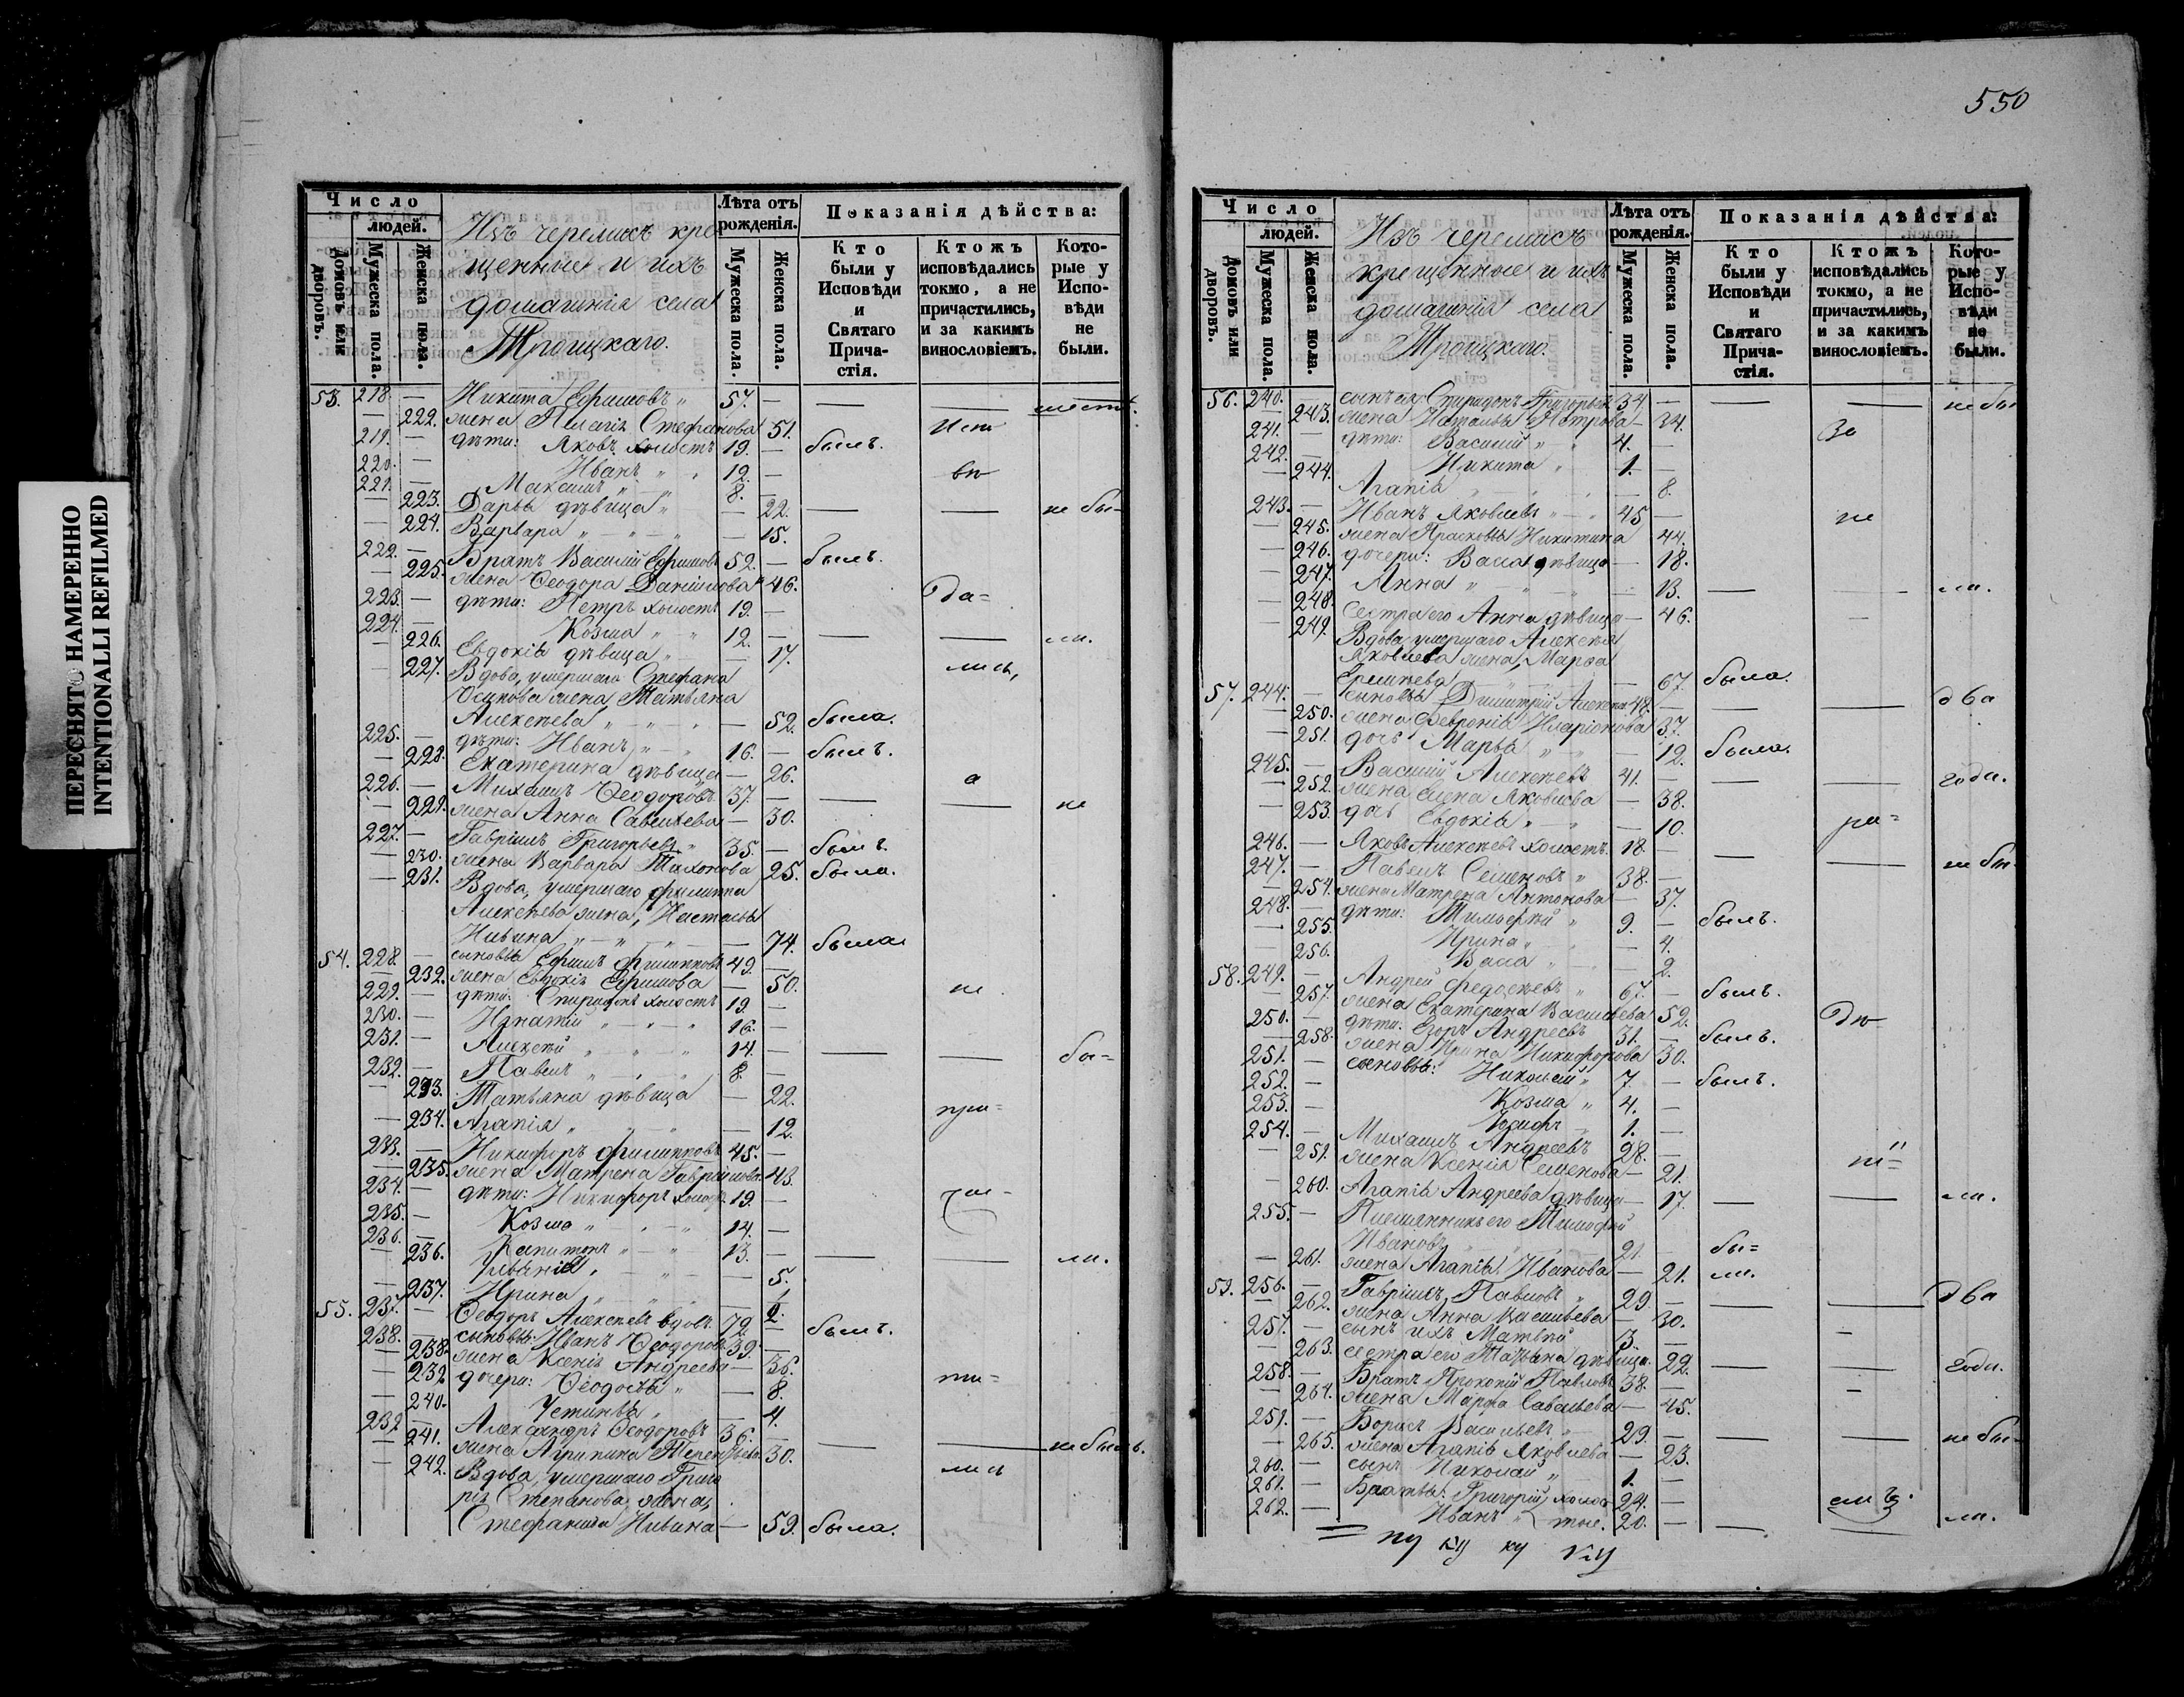 ПЕРЕСНЯТО НАМЕРЕННО
INTENTIONALLI REFILMED
Число
Лѣта отъ рожденія.
Показанія дѣйства:
людей.
Домовъ или дворовъ.
Мужеска пола.
Женска пола.
Изъ черемисъ кре
щенные и ихъ
домашнія села
Троицкаго.
Мужеска пола.
Женска пола.
Кто были у Исповѣди и Святаго Причастія.
Ктожъ исповѣдались токмо, а не причастились, и за какимъ винословіемъ.
Которые у Исповѣди не были.
53. 218. — Никита Ефимовъ „ 57. —
— 222. жена Пелагія Стефанова 51. Исп
219. — дѣти: Яковъ холостъ 19. — былъ.
220. — Иванъ „ „ 12. — вѣ
221. — Максимъ „ „ 8. —
— 223. Дарья дѣвица „ — 22. — — не бы-
— 224. Варвара „ „ — 15.
222. — Братъ Василій Ефимовъ 52. — былъ.
— 225. жена Ѳеодора Даниилова 46.
223. — дѣти: Петръ холостъ 19. — да=
224. — Козма „ „ 12. — — — ли.
— 226. Евдокія дѣвица „ — 17.
— 227. Вдова, умершаго Стефана лись,
Осипова жена Татьяна
Алексѣева „ „ — 52. была.
225. — дѣти: Иванъ „ „ 16. — былъ.
— 228. Екатерина дѣвица — 26.
226. — Михаилъ Ѳеодоровъ 37. — а
— 229. жена Анна Савельева — 30. — — не
227. — Гавріилъ Григорьевъ „ 35. — былъ.
— 230. жена Варвара Тихонова 25. была.
— 231. Вдова, умершаго Филиппа
Алексѣева жена, Настасья
Нивина „ „ — 74. была
54. 228. — сыновья Ефимъ Филипповъ 49. —
— 232. жена Евдокія Ефимова — 50.
229. — дѣти: Спиридонъ холостъ 19. — не
230. — Игнатій „ „ 16. —
231. — Алексѣй „ „ 14. — — — бы=
232. — Павелъ „ „ 8. —
— 233. Татьяна дѣвица — 22.
— 234. Агапія „ „ — 12. при=
233. — Никифоръ Филипповъ 45. —
— 235. жена Матрена Гавриилова 43.
234. — дѣти: Никифоръ холос. 19. —
235. — Козма „ „ 14. —
236. — Капитонъ „ „ 13. — — — ли.
— 236. Уліанія „ — 5.
— 237. Ирина „ „ —
55. 237. — Ѳеодоръ Алексѣевъ вдовъ 72. — былъ.
238. — сыновья: Иванъ Ѳеодоровъ 39. —
— 238. жена Ксенія Андреева — 36.
— 239. дочери: Ѳеодосья „ — 8.
— 240. Устинья „ — 4.
239. — Александръ Ѳеодоровъ 36. —
— 241. жена Агрипина Терентьева 30. — —
— 242. Вдова, умершаго Григо
рія Степанова, жена, лись
Стефанида Нивина — 59. была.
550
Число
Лѣта отъ рожденія.
Показанія дѣйства:
людей.
Домовъ или дворовъ.
Мужеска пола.
Женска пола.
Изъ черемисъ
крещенные и ихъ
домашнія села
Троицкаго.
Мужеска пола.
Женска пола.
Кто были у Исповѣди и Святаго Причастія.
Ктожъ исповѣдались токмо, а не причастились, и за какимъ винословіемъ.
Которые у Исповѣди не были.
56. 240. — сынъ ея Спиридонъ Григорьевъ 34. — — — не бы
— 243. жена Наталья Петрова — 34.
241. — дѣти: Василій „ 4. — За
242. — Никита „ 1. —
— 244. Агапія „ — 8.
243. — Иванъ Яковлевъ „ 45 — не
— 245. жена Прасковья Никитина 44.
— 246. дочери: Васса дѣвица — 18.
— 247. Анна „ „ — 13. — — ли.
— 248. Сестра его Анна дѣвица — 46.
— 249. Вдова, умершаго Алексѣя
Яковлева жена, Марѳа
Еремѣева — 67. была.
57. 244. — сыновья Димитрій Алексѣевъ 48. — — — два
— 250. жена Февронія Иларіонова 37.
— 251. дочь Марья „ — 12. была.
245. — Василій Алексѣевъ 41. — — — годи.
— 252. жена Елена Яковлева — 38.
— 253. дочь Евдокія „ — 10. ра=
246. — Яковъ Алексѣевъ холостъ 18. — — — не бы-
247. — Павелъ Семеновъ „ 38. —
— 254. жена Матрена Антонова — 37.
248. — дѣти: Тимоѳей „ 9. — былъ.
— 255. Ирина „ — 4.
— 256. Васса „ — 2.
58. 249. — Андрей Федосѣевъ „ 67. — былъ.
— 257. жена Екатерина Васильева 52.
250. — дѣти: Егоръ Андреевъ 31. — былъ.
— 258. жена Ирина Никифорова 30.
251. — сыновья: Николай „ 7. — былъ.
252. — Козма „ 4. —
253. — Іосифъ „ 1. —
254. — Михаилъ Андреевъ 28. —
— 259. жена Ксенія Семенова — 21.
— 260. Агапія Андреева дѣвица — 17. — — ли.
255. — Племянникъ его Тимофей
Ивановъ „ „ 21. — бы=
— 261. жена Агапія Иванова — 21. ли.
59. 256. — Гавріилъ Павловъ „ 29. — — — два
— 262. жена Анна Васильева — 30.
257. — сынъ ихъ Матвѣй 3. —
— 263. сестра его Татьяна дѣвица 22. — — годи.
258. — Братъ Прокопій Павловъ 38. —
— 264. жена Марѳа Савельева — 45.
259. — Борисъ Васильевъ „ 29. — — — не бы-
— 265. жена Агапія Яковлева — 23.
260. — сынъ Николай „ 1. —
261. — Братья: Григорій холос 24. —
262. — Иванъ „ тые. 20. — — — ли.